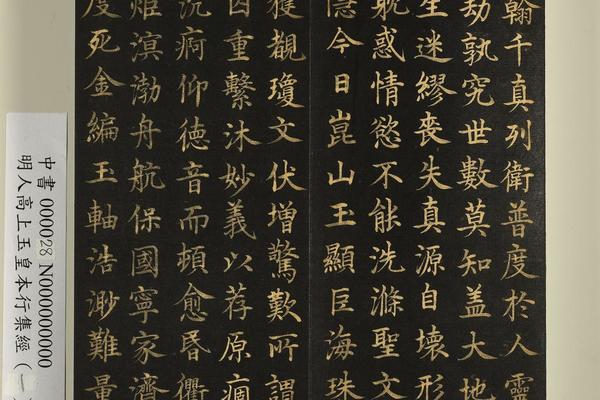 翰千真列衛普度於人靈
劫孰究世數莫知蓋大地
生迷繆喪失真源自壞形
耽惑情慾不能洗滌聖文
隱今日崑山玉顯巨海珠
獲覩瓊文伏增驚歎所謂
因重繫沐妙義以荐原痼
沉痾仰德音而頓愈昏衢
炬溟渤舟航保國寧家濟
度死金編玉軸浩渺難量
中書 000028 N000000000
明人高上玉皇本行集經(一